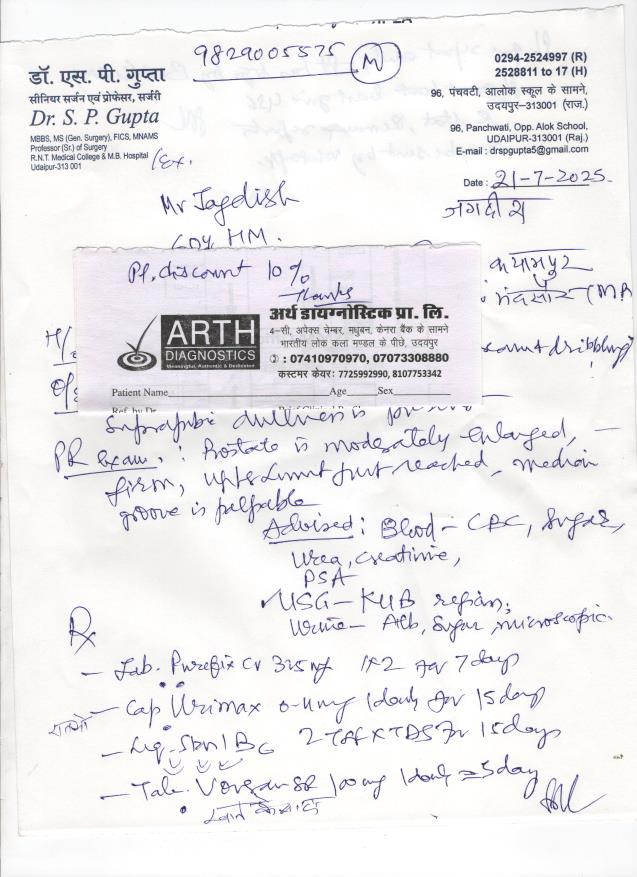 9829005575 (M)
डॉ. एस. पी. गुप्ता
सीनियर सर्जन एवं प्रोफेसर, सर्जरी
Dr. S. P. Gupta
MBBS, MS (Gen. Surgery), FICS, MNAMS
Professor (Sr.) of Surgery
R.N.T. Medical College & M.B. Hospital
Udaipur-313 001
(Ex.
0294-2524997 (R)
2528811 to 17 (H)
96, पंचवटी, आलोक स्कूल के सामने,
उदयपुर–313001 (राज.)
96, Panchwati, Opp. Alok School,
UDAIPUR-313001 (Raj.)
E-mail : drspgupta5@gmail.com
Date : 21-7-2025.
Mr Jagdish
जगदीश
HM.
Pl. discount 10%
Thanks
ARTH
DIAGNOSTICS
Meaningful, Authentic & Dedicated
अर्थ डायग्नोस्टिक प्रा. लि.
4–सी, अपेक्स चेम्बर, मधुबन, केनरा बैंक के सामने
भारतीय लोक कला मण्डल के पीछे, उदयपुर
: 07410970970, 07073308880
कस्टमर केयर: 7725992990, 8107753342
Patient Name Age Sex
मंदसौर (MP
H/
dribbling
O/
Suprapubic dullness is
PR Exam. : Prostate is moderately enlarged, –
firm, upper limit just reached, median
groove is palpable
Advised : Blood – CBC, Sugar,
Urea, Creatinine,
PSA
✓USG – KUB region,
Urine – Alb, Sugar, microscopic.
Rx
– Tab. CV 325 mg 1x2 for 7 days
– Cap Urimax 0.4mg 1 daily for 15 days
– Liq. 2 TSF x TDS for 15 days
– Tab. SR 100 mg 1 daily 5 day
खाने के बाद